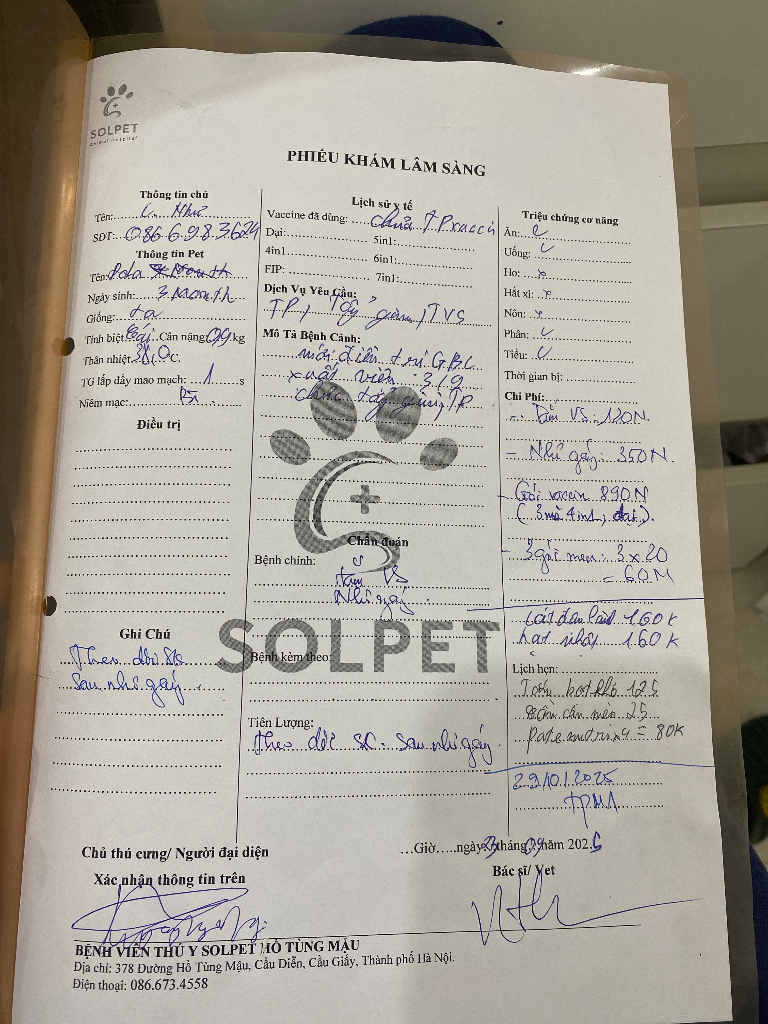 SOLPET
Animal Hospital
PHIẾU KHÁM LÂM SÀNG
Thông tin chủ
Tên: C. Như
SĐT: 0866983624
Thông tin Pet
Tên:
Ngày sinh: 3 Month
Giống: ta
Tính biệt: Cái Cân nặng 0,9 kg
Thân nhiệt 38,0 °C.
TG lấp đầy mao mạch: 1 s
Niêm mạc:
Điều trị
Ghi Chú
Theo dõi SK
sau nhỏ gáy
Lịch sử y tế
Vaccine đã dùng: chưa TP vaccin
Dại: 5in1:
4in1 6in1:
FIP: 7in1:
Dịch Vụ Yêu Cầu:
TP, Tẩy giun, TVS
Mô Tả Bệnh Cảnh:
mới điều trị GBC
xuất viện 3/9
chưa tẩy giun, TP
Chẩn đoán
Bệnh chính:
tắm VS
Nhỏ gáy
SOLPET
Bệnh kèm theo:
Tiên Lượng:
Theo dõi SK sau nhỏ gáy
Triệu chứng cơ năng
Ăn:
Uống:
Ho: x
Hắt xì: x
Nôn: x
Phân:
Tiểu:
Thời gian bị:
Chi Phí:
- Tắm VS: 120N
- Nhỏ gáy: 350N
- Gói vaccin 890N
(3 mũi 4in1, dại).
- 3 gói men: 3 x 20
= 60N
Cát đậu 160K
hạt 160K
Lịch hẹn:
125
25
Pate = 80K
29/01/2025
Giờ.....ngày 23 tháng 09 năm 2025
Chủ thú cưng/ Người đại diện
Xác nhận thông tin trên
Bác sĩ/ Vet
BỆNH VIỆN THÚ Y SOLPET HỒ TÙNG MẬU
Địa chỉ: 378 Đường Hồ Tùng Mậu, Cầu Diễn, Cầu Giấy, Thành phố Hà Nội.
Điện thoại: 086.673.4558